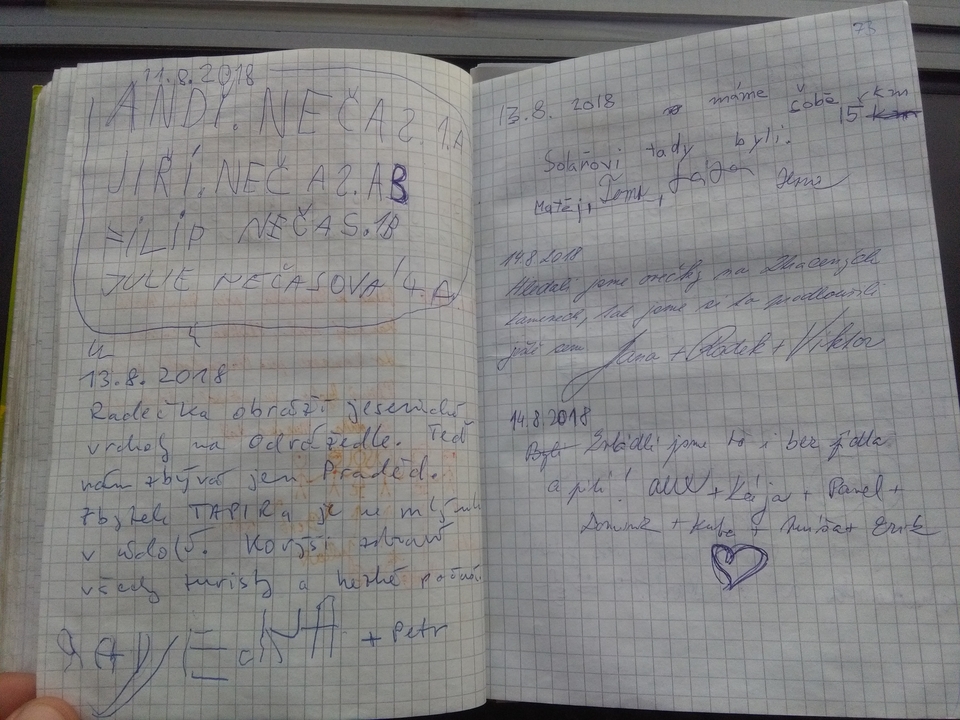 11.8.2018
ANDI. NEČAS. 1.A
JIŘÍ. NEČAS 2. AB
FILIP NEČAS.1B
JULIE NEČASOVÁ 4. A
13.8.2018
Radečka obráží jesenické
vrcholy na odrážedle. Teď
nám zbývá jen Praděd.
Zbytek TAPIRŮ je ve mlýnu
v údolí. Kovjśi zdraví
všechny turisty a hezké počasí
+ Petr
73
13.8. 2018 máme sobě 15 km km
Solařovi tady byli.
Matěj, Tom, Jája Jena
14.8.2018
Hledali jsme ovečky na Ztracených
kamenech, tak jsme si to prodloužili
až sem Jana + Radek + Viktor
14.8.2018
Byli Zvládli jsme to i bez jídla
a pití! + Kája + Pavel +
Dominik + Kuba + Míša + Erik